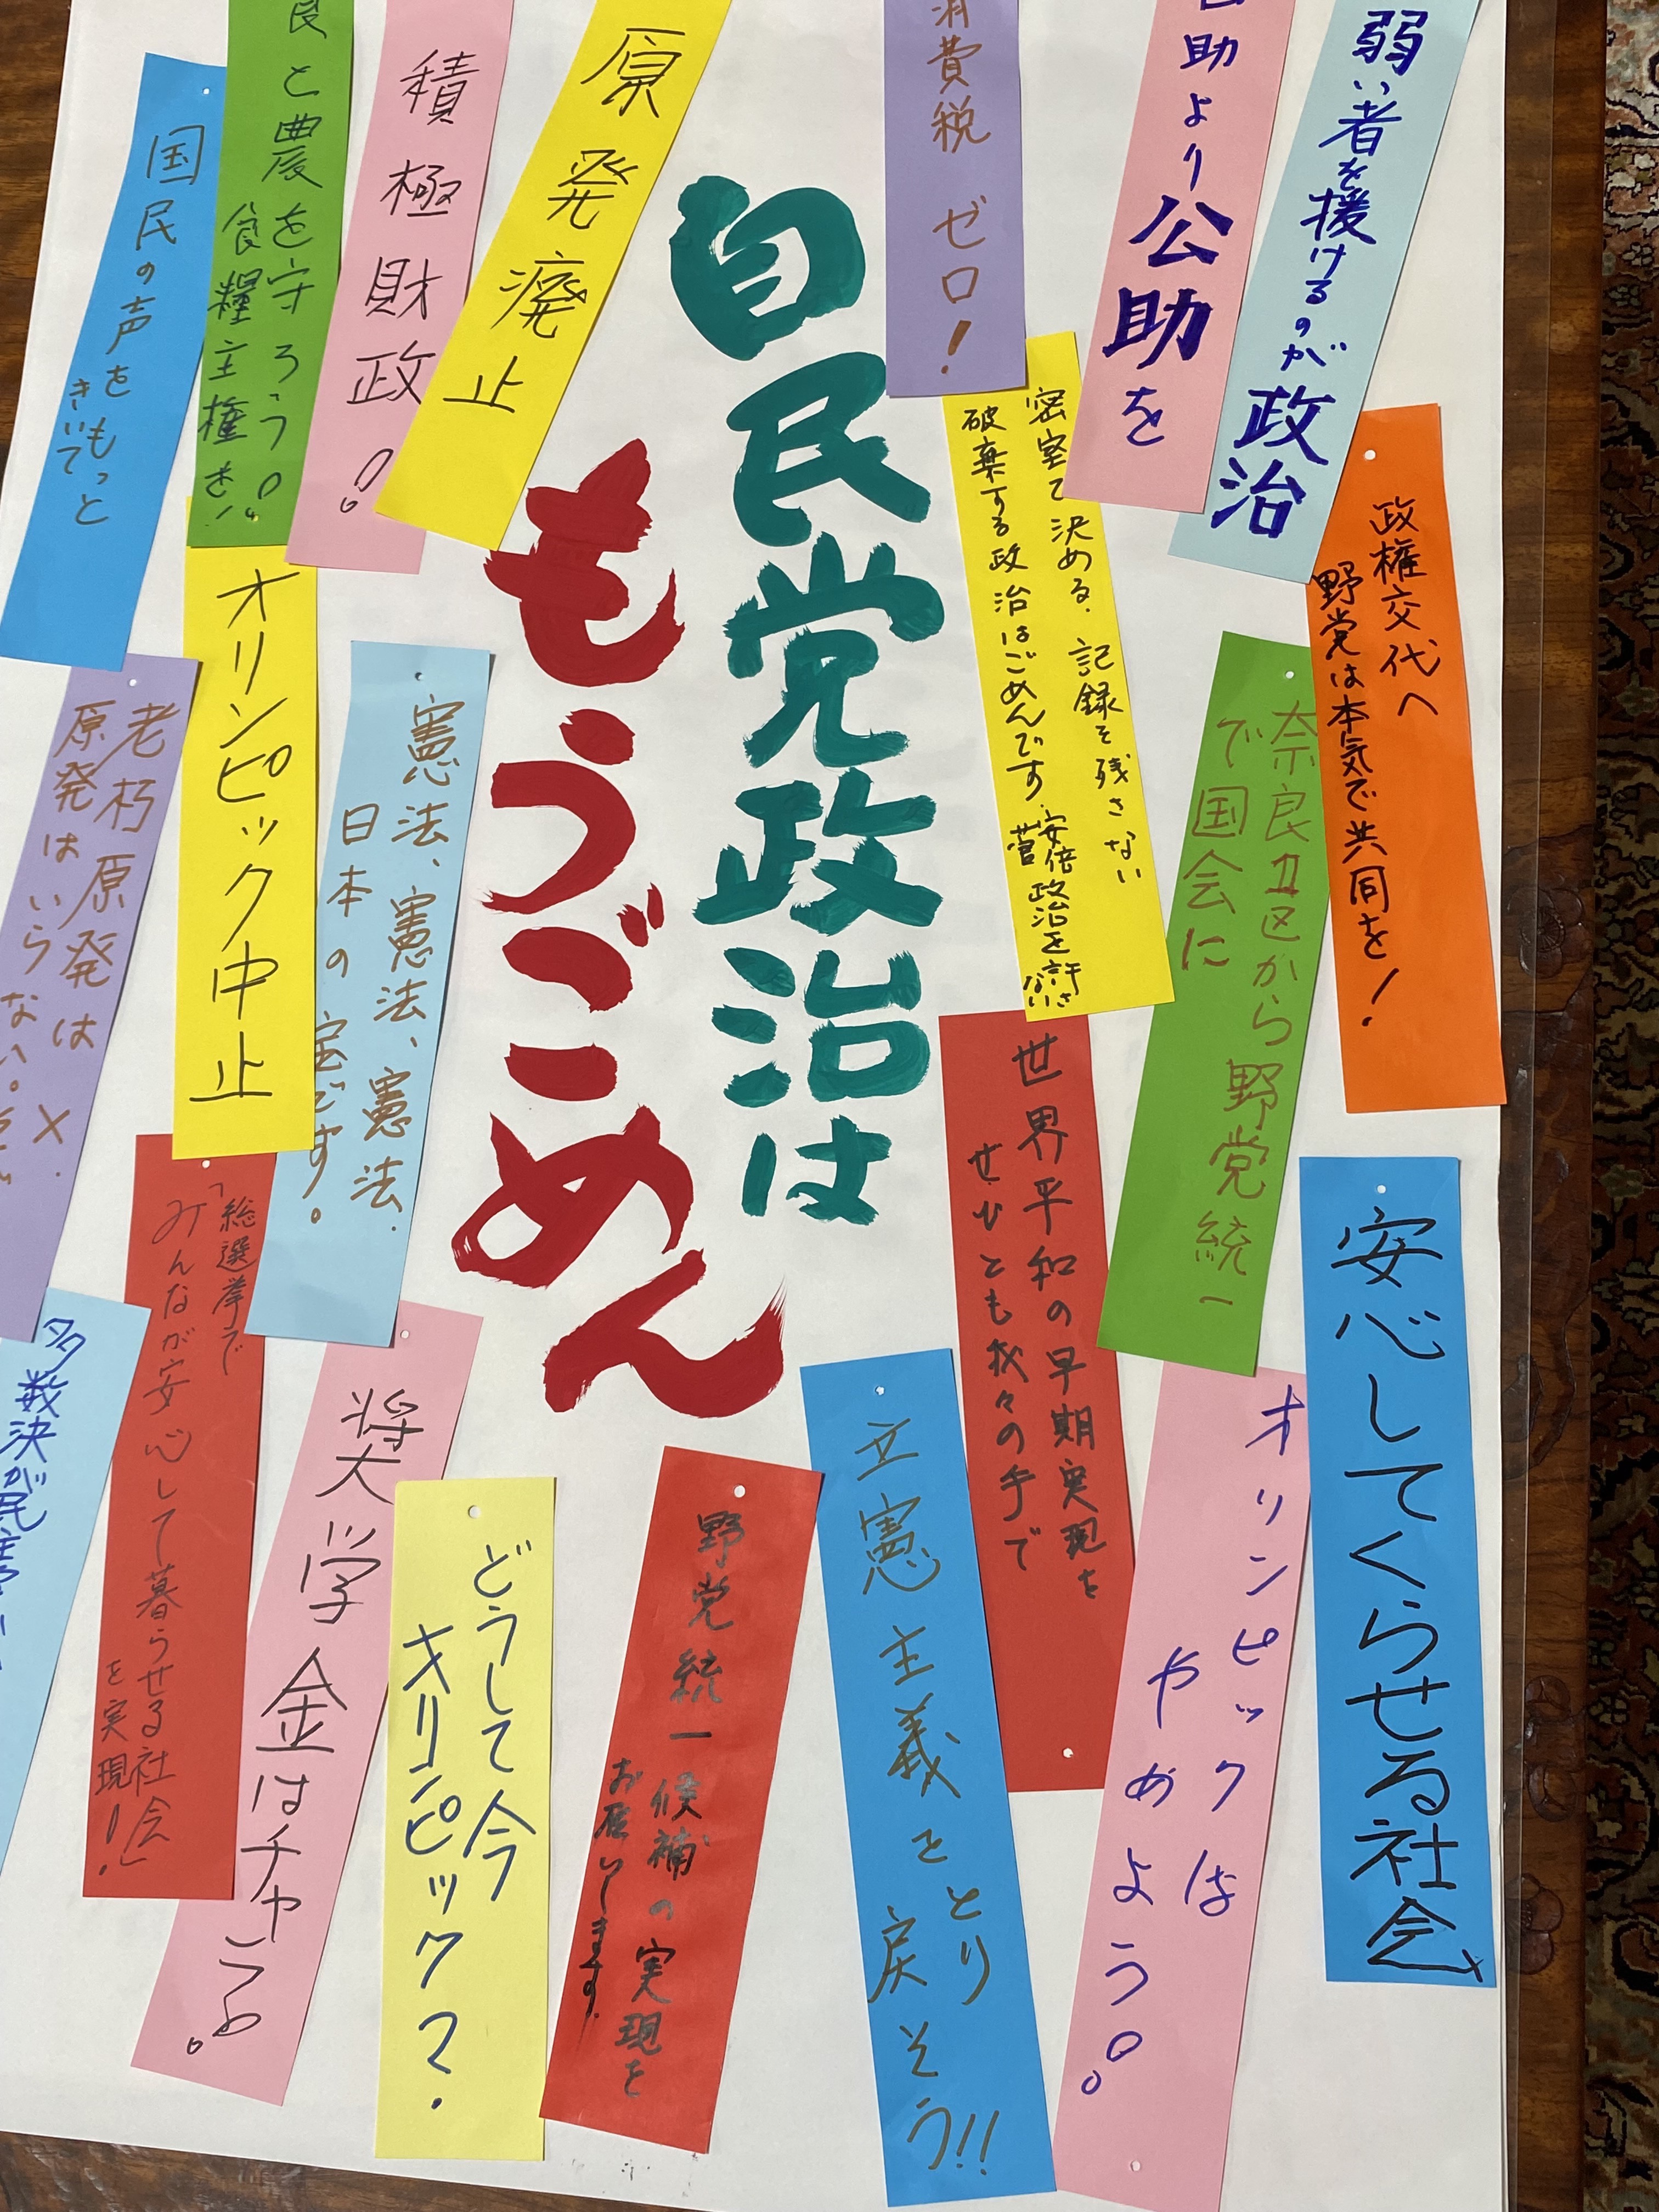 自民党政治は
もうごめん
弱い者を援けるのが政治
助より公助を
消費税 ゼロ!
原発廃止
積極財政!
と農を守ろう!
食糧主権を!
国民の声をもっと
きいて
政権交代へ
野党は本気で共同を!
密室で決める.記録を残さない
破棄する政治はごめんです.安倍
菅
政治を許さ
ない
奈良1区から野党統一
で国会に
オリンピック中止
憲法、憲法、憲法.
日本の宝です。
老朽原発は×.
原発はいらない。
世界平和の早期実現を
ぜひとも我々の手で
安心してくらせる社会
「総選挙で
みんなが安心して暮らせる社会」
を実現!
多数決が民主
奨学金はチャラ
どうして今
オリンピック?
野党統一候補の実現を
お願いします.
立憲主義をとり
戻そう!!
オリンピックは
やめよう。